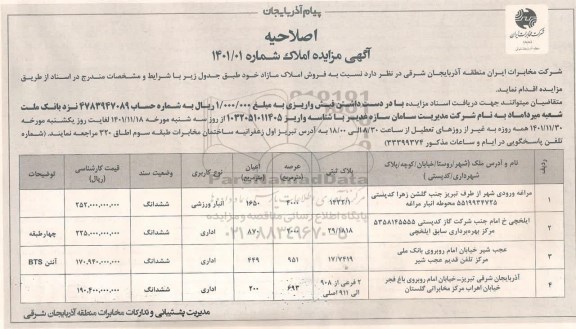 پیام آذربایجان
شرکت مخابرات ایران
اصلاحیه
آگهی مزایده املاک شماره ۱۴۰۱/۰۱
شرکت مخابرات ایران منطقه آذربایجان شرقی در نظر دارد نسبت به فروش املاک مازاد خود طبق جدول زیر با شرایط و مشخصات مندرج در اسناد از طریق
مزایده اقدام نماید.
متقاضیان میتوانند جهت دریافت اسناد مزایده با در دست داشتن فیش واریزی به مبلغ ۱/۰۰۰/۰۰۰ ریال به شماره حساب ۴۷۸۳۹۴۷۰۸۹ نزد بانک ملت
شعبه میرداماد به نام شرکت مدیریت سامان سازه غدیر با شناسه واریز ۱۰۳۲۰۵۱۰۱۱۴۰۵ از روز سه شنبه مورخه ۱۴۰۱/۱۱/۱۸ لغایت روز یکشنبه مورخه
۱۴۰۱/۱۱/۳۰ همه روزه به غیر از روزهای تعطیل از ساعت ۸/۳۰ الی ۱۸/۰۰ به آدرس تبریز اول زعفرانیه ساختمان مخابرات طبقه سوم اطاق ۳۲۰ مراجعه نمایند. (شماره
تلفن پاسخگویی در ایام و ساعات کاری ۳۳۲۹۹۳۷۴)
ردیف نام و آدرس ملک (شهر/روستا/خیابان/کوچه/پلاک شهرداری/کدپستی) پلاک ثبتی عرصه (مترمربع) اعیان (مترمربع) نوع کاربری وضعیت سند قیمت کارشناسی (ریال) توضیحات
۱ مراغه ورودی شهر از طرف تبریز جنب گلشن زهرا کدپستی ۵۵۱۹۹۳۴۷۲۵ محوطه انبار مراغه ۱۶۵۰ انبار ورزشی ششدانگ ۲۵۲.۰۰۰.۰۰۰.۰۰۰
۲ ایلخچی خ امام جنب شرکت گاز کدپستی ۵۳۵۸۱۴۵۵۵۵ مرکز بهره‌برداری سابق ایلخچی ۲۹/۶۸۱۸ ۸۷۰ اداری ششدانگ ۲۲۵.۰۰۰.۰۰۰.۰۰۰ چهارطبقه
۳ عجب شیر خیابان امام روبروی بانک ملی مرکز تلفن قدیم عجب شیر ۱۷/۷۴۱۹ ۹۵۱ ۴۴۹ اداری ششدانگ ۱۷۰.۹۴۰.۰۰۰.۰۰۰ آنتن BTS
۴ آذربایجان شرقی تبریز-خیابان امام روبروی باغ فجر خیابان اهراب مرکز مخابراتی گلستان ۲ فرعی از ۹۰۸ الی ۹۱۱ اصلی ۶۹۳ ۲۰۰ اداری ششدانگ ۱۹۰.۴۰۰.۰۰۰.۰۰۰
مدیریت پشتیبانی و تدارکات مخابرات منطقه آذربایجان شرقی